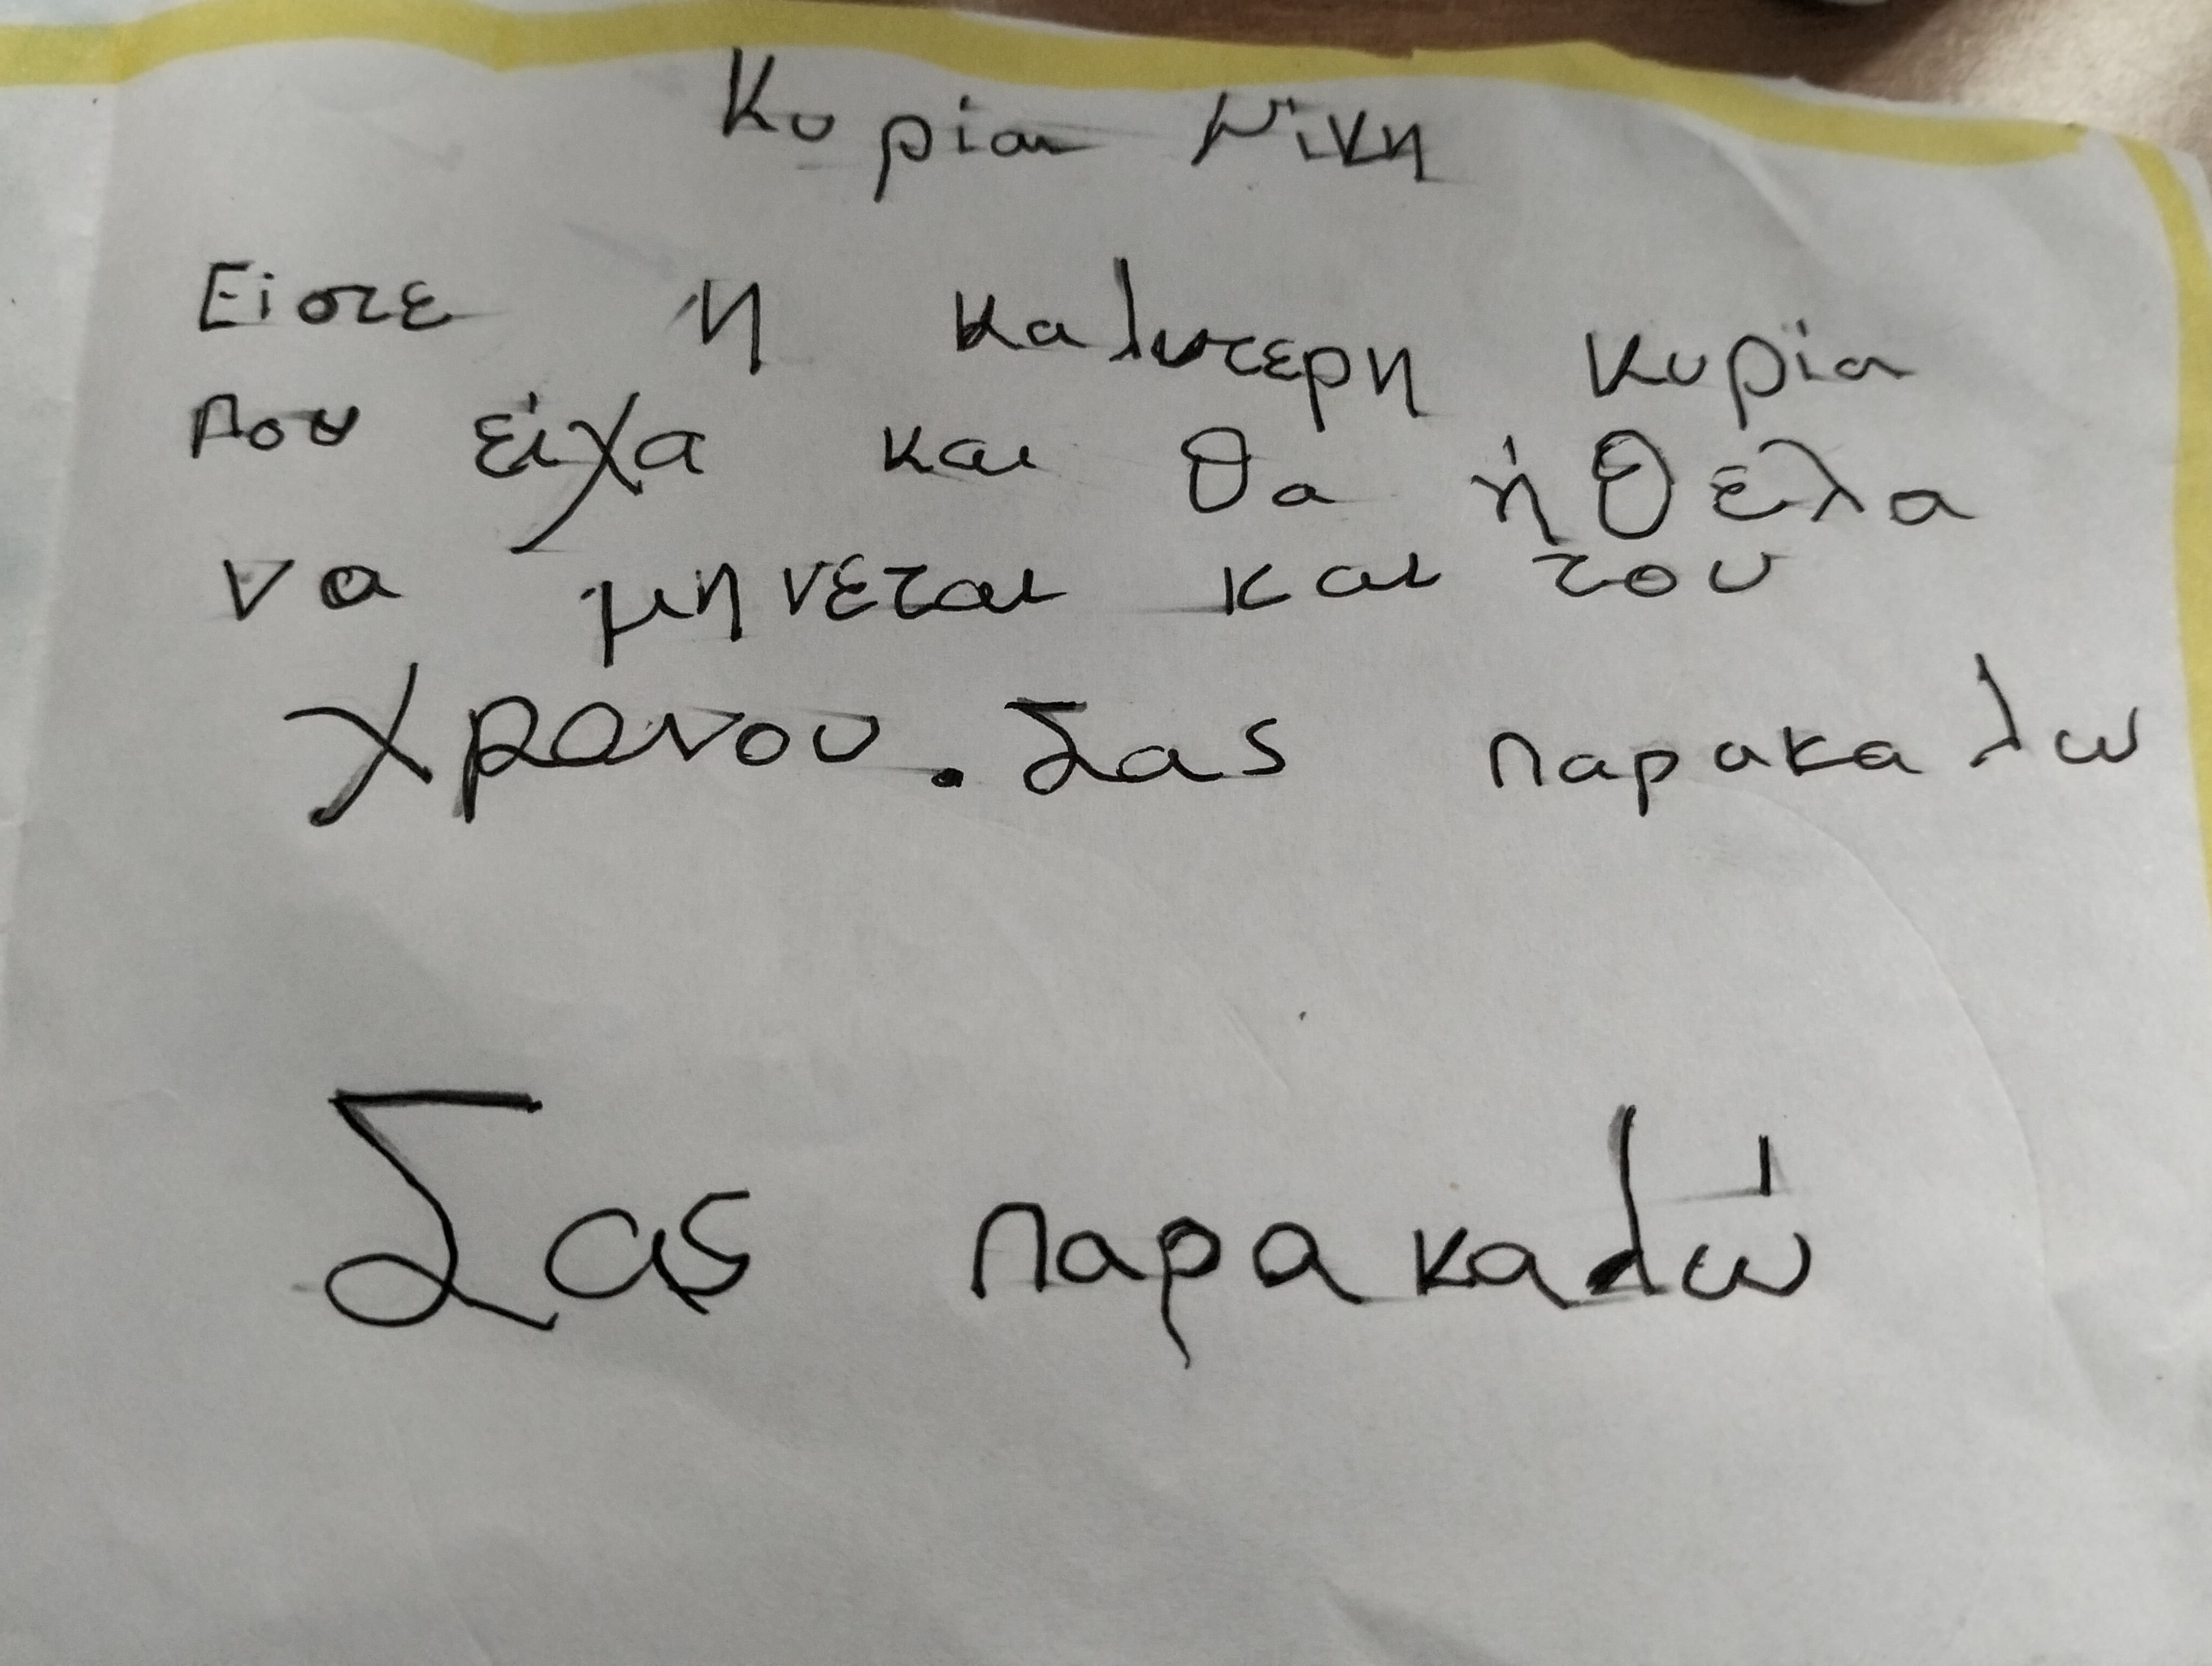 Κυρία Νίκη
Είστε η καλυτερη κυρία
που είχα και θα ήθελα
να μηνεται και του
χρονου. Σας παρακαλω
Σας παρακαλώ